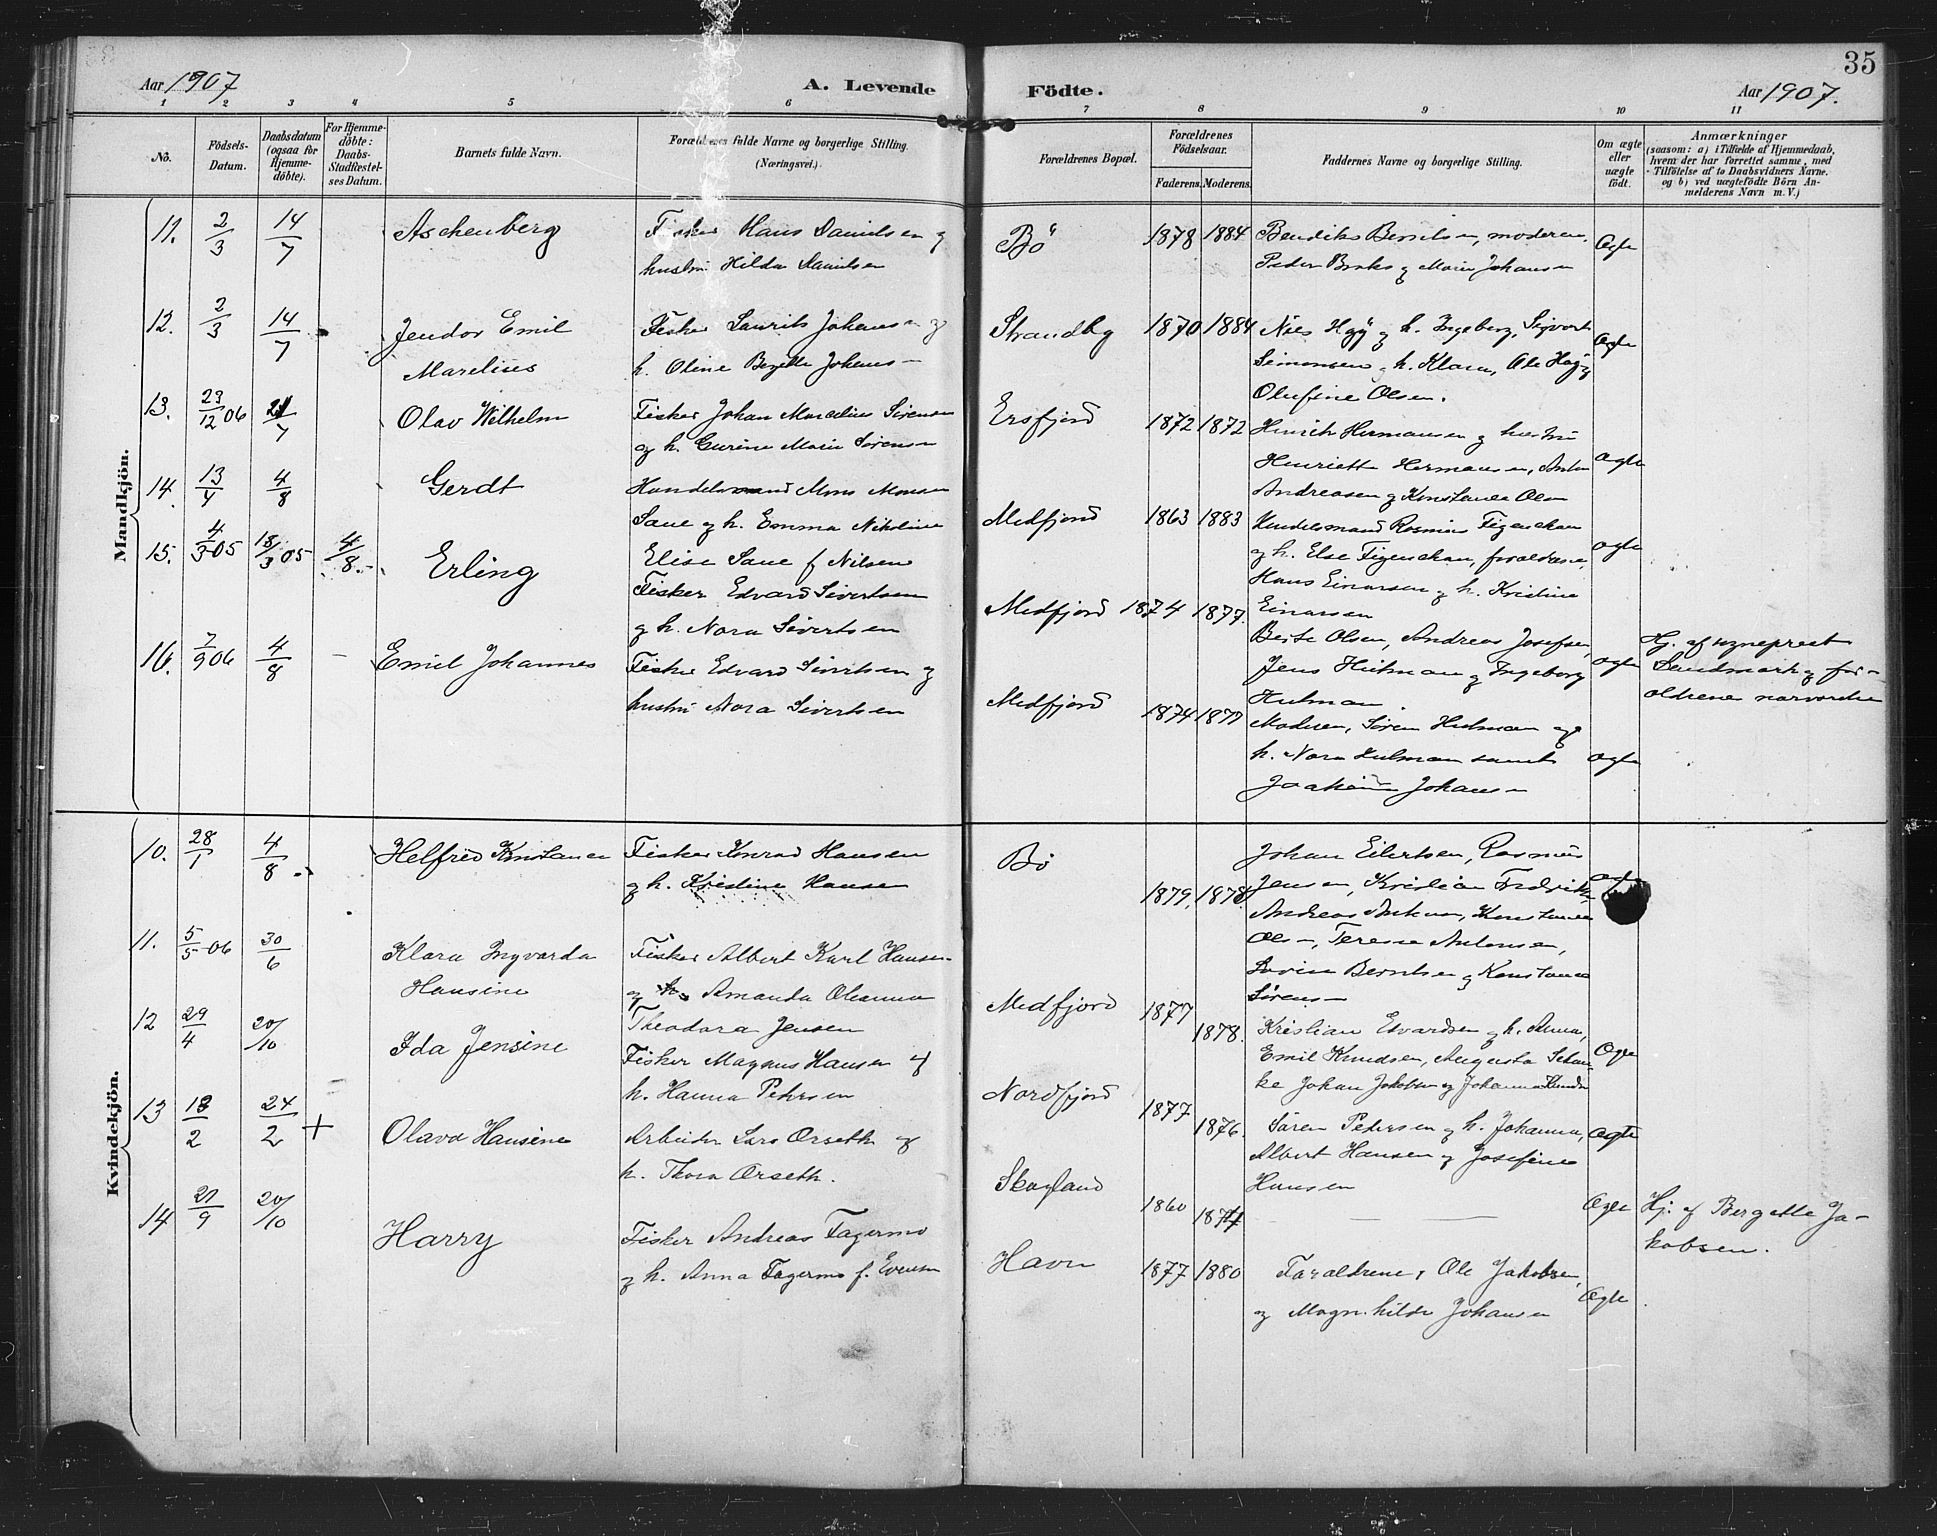 Aar 1907
A. Levende
Födte.
Aar 1907.
35
1 2 3 4 5 6 7 8 9 10 11
No.
Födsels-
Datum.
Daabsdatum
(ogsaa for
Hjemme-
döbte).
For Hjemme-
döbte:
Daabs-
Stadfestel-
ses Datum.
Barnets fulde Navn.
Forældrenes fulde Navne og borgerlige Stilling.
(Næringsvei.)
Forældrenes Bopæl.
Forældrenes
Födselsaar.
Faderens.
Moderens.
Faddernes Navne og borgerlige Stilling.
Om ægte
eller
uægte
födt.
Anmærkninger
(saasom: a) i Tilfælde af Hjemmedaab,
hvem der har forrettet samme, med
Tilföielse af to Daabsvidners Navne.
og b) ved uægtefödte Börn An-
melderens Navn m. V.)
Mandkjön.
11. 2/3 14/7 Aschenberg Fisker Hans Danielsen og Bö 1878 1884
hustru Hilda Danielsen Peder og Marie Johansen Ægte
12. 2/3 14/7 Jendor Emil Fisker Laurits Johansen og Strandby 1870 1884 og h. Ingeborg, Sigvart
Marelius h. Oline Johans Simonsen og h. Klara, Ole Høg Ægte
Olufine Olsen.
13. 23/12 06 21/7 Olav Wilhelm Fisker Johan Marcelius Sörensen Ersfjord 1872 1872 Hinrik Hermansen og hustru
og h. Gurine Marie Sörensen Henriette Hermansen, Anton Ægte
Andreasen og Konstance Olsen
14. 13/4 4/8 Gerdt Handelsmand Mons Monsen Medfjord 1863 1883 Handelsmand Rasmus Figenschau
Sane og h. Emma Nikoline og h. Else Figenschau, forældrene, ægte
Elise Sane f Nilsen Hans Einarsen og h. Kristine
Einarsen
15. 4/3 05 18/3 05 4/8 Erling Fisker Edvard Sivertsen Medfjord 1874 1877. Olsen, Andreas Josefsen, Hj. af sogneprest
og h. Nora Sivertsen Jens Hulman og Ingeborg ægte Sandmark og for-
Hulman. ældrene nærværende
16. 7/9 06 4/8 – Emil Johannes Fisker Edvard Sivertsen og Medfjord 1874 1877 Moderen, Sören Hulman og
hustru Nora Sivertsen h. Nora Hulman samt ægte
Joakim Johansen
Kvindekjön.
10. 28/1 4/8 Helfrid Konstance Fisker Konrad Hansen Bö 1879. 1878 Johan Eilertsen, Rasmus
og h. Kristine Hansen Jensen, Kristian Fredriks
Andreas Antonsen, Konstance
Olsen, Teresie Antonsen,
Lovise Berntsen og Konstance
Sörensen
11. 5/5 06 30/6 Klara Ingvarda Fisker Albert Karl Hansen Medfjord 1877 1878. Kristian Edvardsen og h. Anna,
Hansine og h. Amanda Oleanna Emil Knudsen, Augusta Schan- Ægte
Theodora Jensen ke Johan Jakobsen og Johanna
12 29/4 20/10 Ida Jensine Fisker Magnus Hansen og Nordfjord 1877 1876. Sören Pedersen og h. Johanna, Ægte
h. Hanna Pedersen Albert Hansen og Josefine
Hansen
13 18/2 24/2 + Olava Hansine Arbeider Lars Orseth og Skogland 1860 1874 — — Ægte Hj. af Bergette Ja-
h. Thora Orseth. kobsen.
14 21/9 20/10 Harry Fisker Andreas Fagermo Havn 1877 1880 Forældrene, Ole Jakobsen, Ægte
og h. Anna Fagermo f. Evensen og Magnhilde Johansen